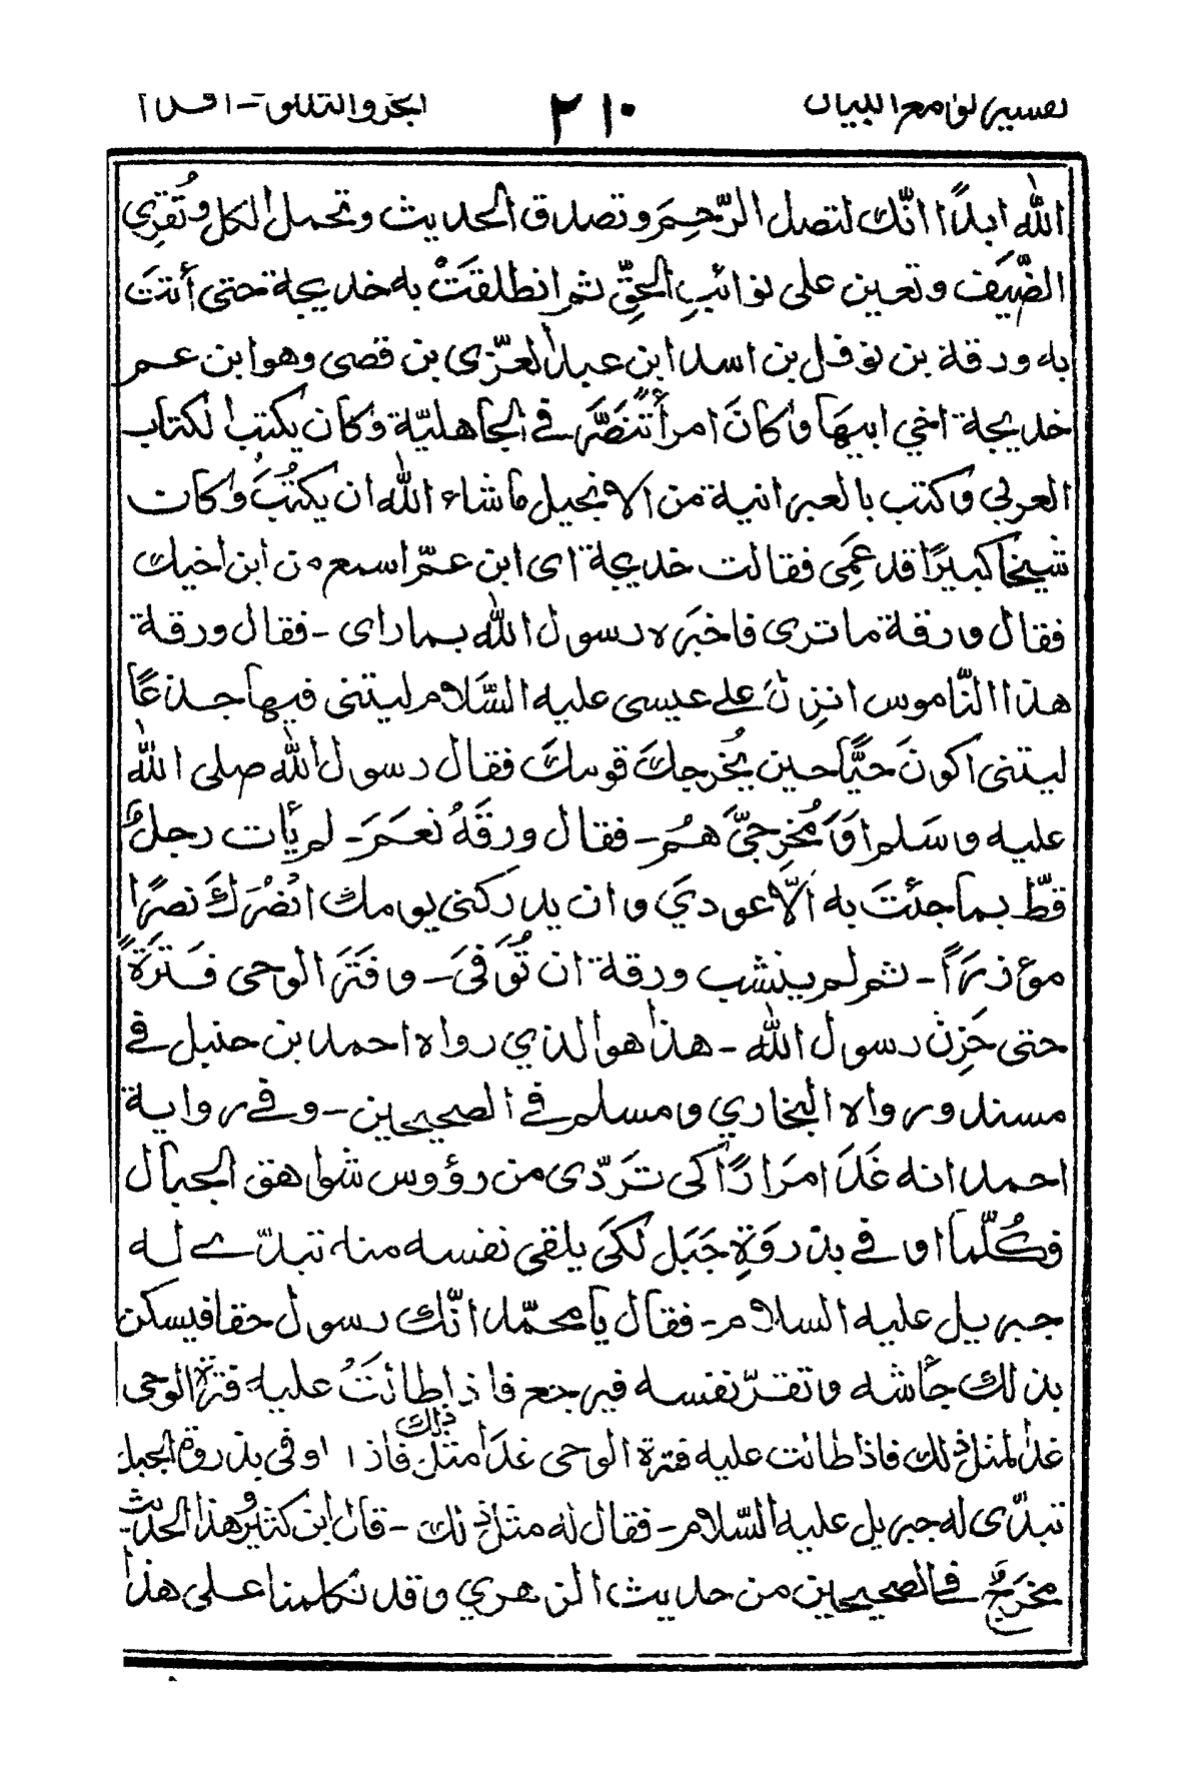 تفسير لوامع البيان ٢١٠ الجزو الثلثون - اقرأ
الله ابدًا انّك لتصل الرّحِمَ وتصدق الحديث وتحمل الكل وتُقرِى
الضَّيَف وتعين على نوائبِ الحقِّ ثم انطلقَتْ به خديجة حتى أنتَت
به ورقة بن نوفل بن اسد ابن عبد العزّى بن قصى وهو ابن عم
خديجة اخي ابيها وكانَ امرأً تَنَصَّرَ في الجاهليّة وكان يكتب الكتاب
العربي وكتب بالعبرانية من الانجيل ما شاء الله ان يكتُبَ وكان
شيخًا كبيرًا قد عَمِى فقالت خديجة اى ابن عمّ اسمع من ابن اخيك
فقال ورقة ما ترى فاخبَره رسول الله بما راى - فقال ورقة
هذا النّاموس انزِلَ على عيسى عليه السَّلام ليتنى فيها جذعًا
ليتنى اكونَ حيًّا حين يُخرجكَ قومك فقال رسول الله صلى الله
عليه وسَلم اوَ مُخرِجيَّ هُم - فقال ورقَهُ نعَمَ - لم يأت رجلٌ
قطّ بما جئتَ به الّا عودي وان يدركنى يومك انصُرَكَ نصرًا
مؤذرَاً - ثم لم ينشب ورقة ان تُوَفىَ - وفَتَرَ الوحى فَترَةً
حتى حَزِنَ رسول الله - هذا هو الذي رواه احمد بن حنبل في
مسند ورواه البخاري ومسلم في الصحيحين - وفي رواية
احمد انه غَدَا مِرَارًا كى تَرَدّى من رؤوس شواهق الجبال
فكُلّما اوفى بذروَةِ جَبَل لكَى يلقى نفسه منه تبدّے له
جبريل عليه السلام - فقال يا محمّد انّك رسول حقا فيسكن
بذلك جأشه وتقرّ نفسه فيرجع فاذا طائتَ عليه فترة الوحى
غدا لمثل ذلك فاذا طائت عليه فترة الوحى غدَا مثل ذلك فاذا اوفى بذروة الجبل
تبدّى له جبريل عليه السّلام - فقال له مثل ذلك - قال ابن كثير وهذا الحديث
مخرَجٌ في الصحيحين من حديث الزهري وقد تكلمنا على هذا